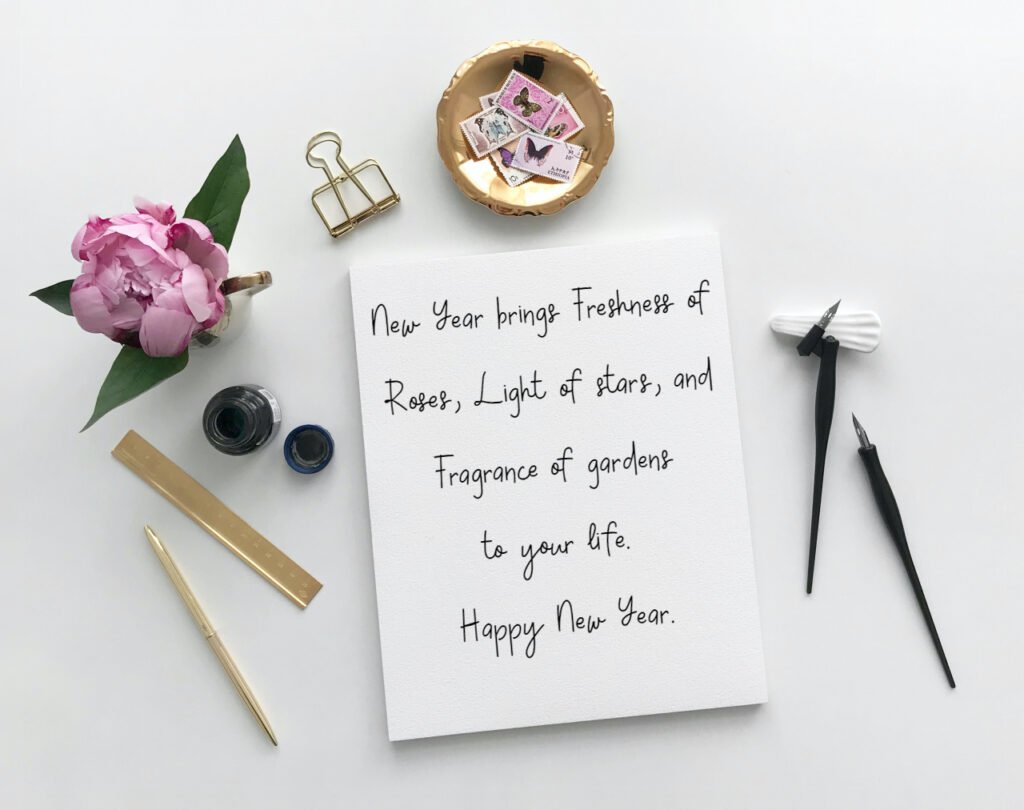 New Year brings Freshness of
Roses, Light of stars, and
Fragrance of gardens
to your life.
Happy New Year.